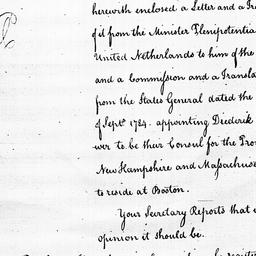 herewith enclosed a Letter and a
of from the Minister Plenipotentia
United Netherlands to him of the
and a Commission and a Transla
from the States General dated the
of Sept. 1784. appointing Diederik
wer to be their Consul for the
New Hampshire and Massachus
to reside at Boston.
Your Secretary Reports that
opinion it should be.